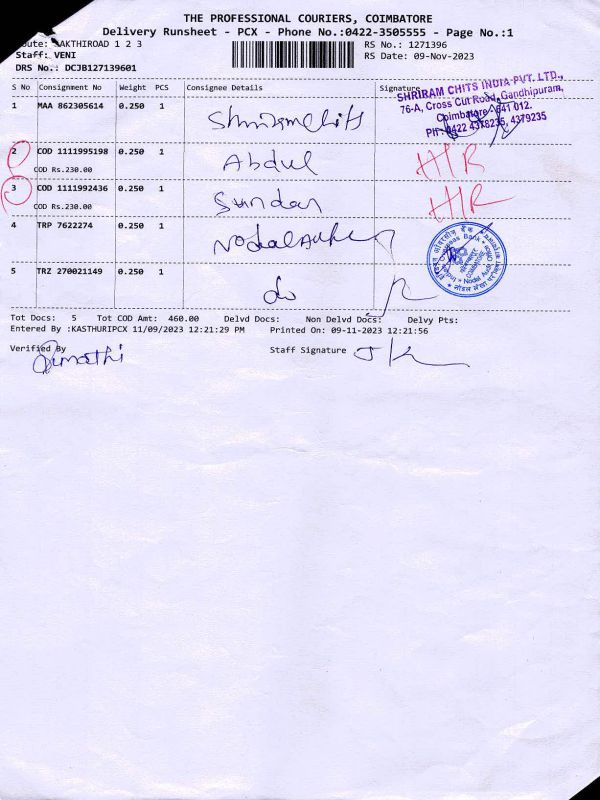 THE PROFESSIONAL COURIERS, COIMBATORE
Delivery Runsheet - PCX - Phone No.:0422-3505555 - Page No.:1
SAKTHIROAD 1 2 3
RS No.: 1271396
Staff: VENI
RS Date: 09-Nov-2023
DRS No.: DCJB127139601
S No Consignment No Weight PCS Consignee Details Signature
SHRIRAM CHITS INDIA PVT. LTD.,
76-A, Cross Cut Road, Gandhipuram,
Coimbatore - 641 012.
PH: 0422 4378235, 4379235
1 MAA 862305614 0.250 1
2 COD 1111995198 0.250 1 Abdul H/R
COD Rs.230.00
3 COD 1111992436 0.250 1 Sundar H/R
COD Rs.230.00
4 TRP 7622274 0.250 1
5 TRZ 270021149 0.250 1 do
Tot Docs: 5 Tot COD Amt: 460.00 Delvd Docs: Non Delvd Docs: Delvy Pts:
Entered By :KASTHURIPCX 11/09/2023 12:21:29 PM Printed On: 09-11-2023 12:21:56
Verified By
Staff Signature